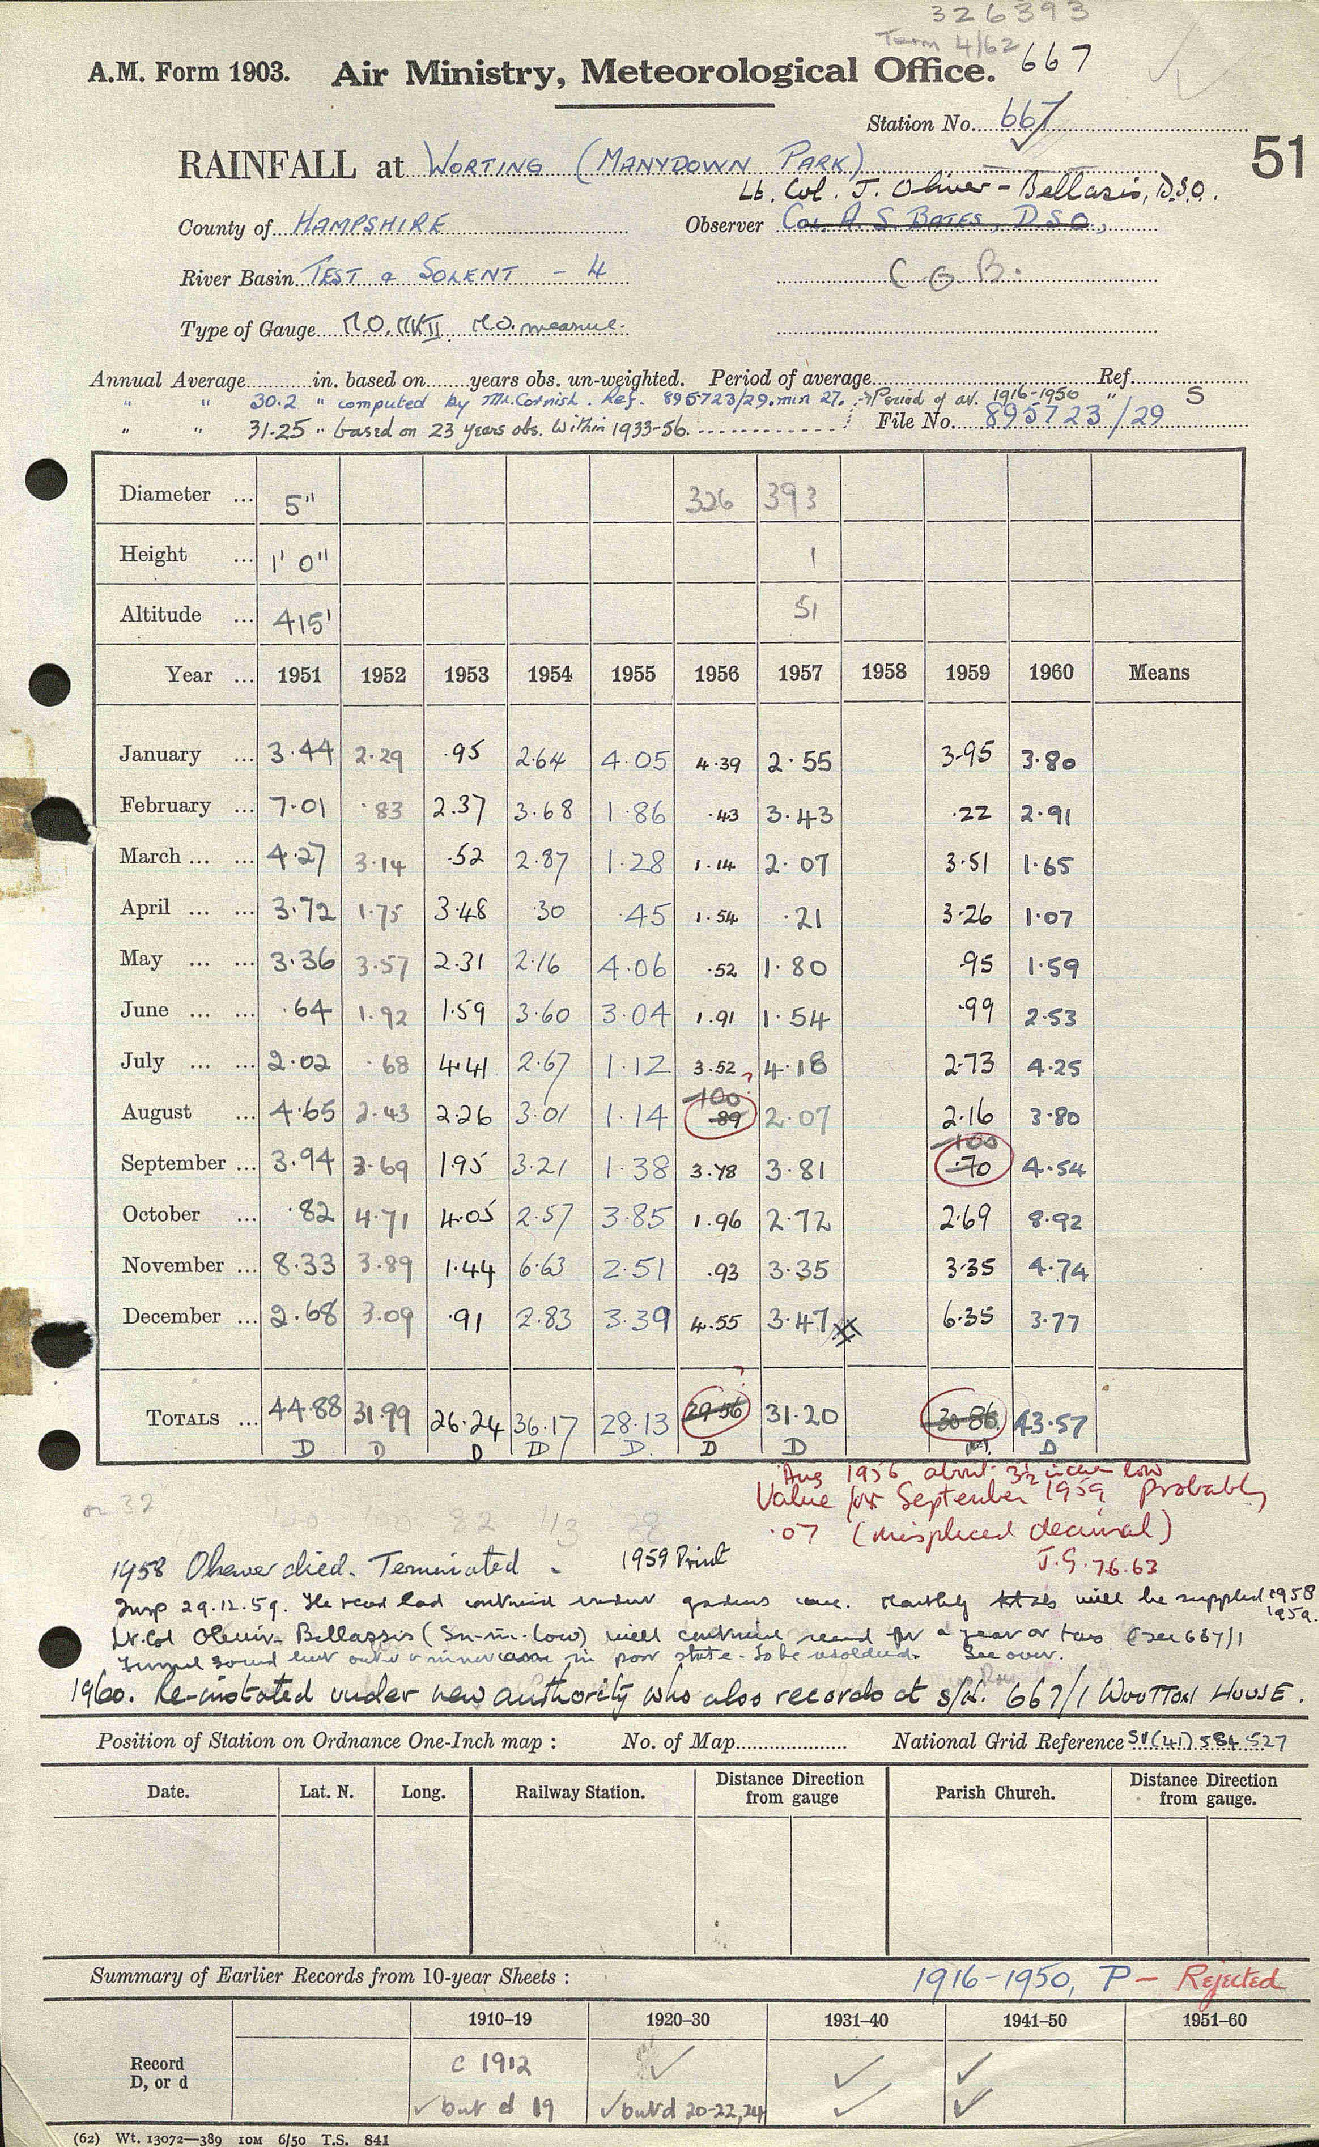 326393
Term 4/62
A.M. Form 1903. Air Ministry, Meteorological Office. 667
Station No. 667
51
RAINFALL at WORTING (MANYDOWN PARK)
Lt. Col. J. Oliver-Bellasis, D.S.O.
County of HAMPSHIRE Observer COL. A. S. BATES, D.S.O.,
River Basin TEST & SOLENT - 4 C G B.
Type of Gauge M.O. MKII. M.O. measure.
Annual Average in. based on years obs. un-weighted. Period of average Ref.
" " 30.2 " computed by Mr. Cornish. Ref. 895723/29. min 27. Period of av. 1916-1950 " S
" " 31.25 " based on 23 years obs. within 1933-56. File No. 895723/29
Diameter ... 5" 326 393
Height ... 1' 0" 1
Altitude ... 415' 51
Year ... 1951 1952 1953 1954 1955 1956 1957 1958 1959 1960 Means
January ... 3.44 2.29 .95 2.64 4.05 4.39 2.55 3.95 3.80
February ... 7.01 .83 2.37 3.68 1.86 .43 3.43 .22 2.91
March ... ... 4.27 3.14 .52 2.87 1.28 1.14 2.07 3.51 1.65
April ... ... 3.72 1.75 3.48 .30 .45 1.54 .21 3.26 1.07
May ... ... 3.36 3.57 2.31 2.16 4.06 .52 1.80 .95 1.59
June ... ... .64 1.92 1.59 3.60 3.04 1.91 1.54 .99 2.53
July ... ... 2.02 .68 4.41 2.67 1.12 3.52 4.18 2.73 4.25
-100 ?
August ... 4.65 2.43 2.26 3.01 1.14 .89 2.07 2.16 3.80
-100
September ... 3.94 3.69 1.95 3.21 1.38 3.78 3.81 .70 4.54
October ... .82 4.71 4.05 2.57 3.85 1.96 2.72 2.69 8.92
November ... 8.33 3.89 1.44 6.63 2.51 .93 3.35 3.35 4.74
December ... 2.68 3.09 .91 2.83 3.39 4.55 3.47 # 6.35 3.77
?
TOTALS ... 44.88 31.99 26.24 36.17 28.13 29.56 31.20 30.86 43.57
D D D D D. D D D
Aug 1956 about 3½ inches low
Value for September 1959 probably
.07 (misplaced decimal)
J.G. 7.6.63
1958 Observer died. Terminated. 1959 Print
Insp 29.12.59. The record had continued under gardens care. Monthly totals will be supplied 1958
1959.
Lt. Col Oliver-Bellassis (Son-in-law) will continue record for a year or two (see 667/1
Funnel sound but outer in poor state - to be resoldered. See over.
1960. Re-instated under new authority who also records at s/n. 667/1 WOOTTON HOUSE.
Position of Station on Ordnance One-Inch map : No. of Map National Grid Reference SU(41) 584 527
Date. Lat. N. Long. Railway Station. Distance Direction from gauge Parish Church. Distance Direction from gauge.
Summary of Earlier Records from 10-year Sheets : 1916-1950, P - Rejected
1910-19 1920-30 1931-40 1941-50 1951-60
Record c 1912 ✓ ✓ ✓
D, or d ✓ but d 19 ✓ but d 20-22, 24 ✓ ✓
(62) Wt. 13072-389 10M 6/50 T.S. 841